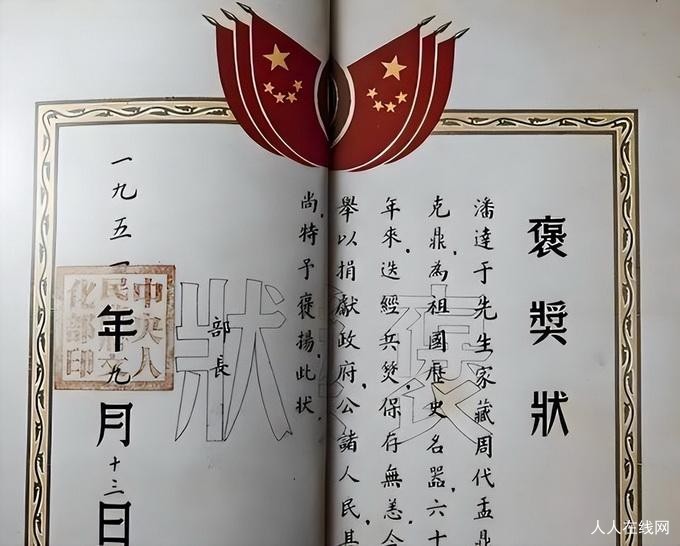 褒獎狀
潘達于先生家藏周代盂鼎
克鼎，為祖國歷史名器，六十
年來，迭經兵燹，保存無恙，今
舉以捐獻政府，公諸人民，其
尚，特予褒揚，此狀。
部長
一九五一年九月十三日
中央人
民文
化部印
褒狀
人人在线网